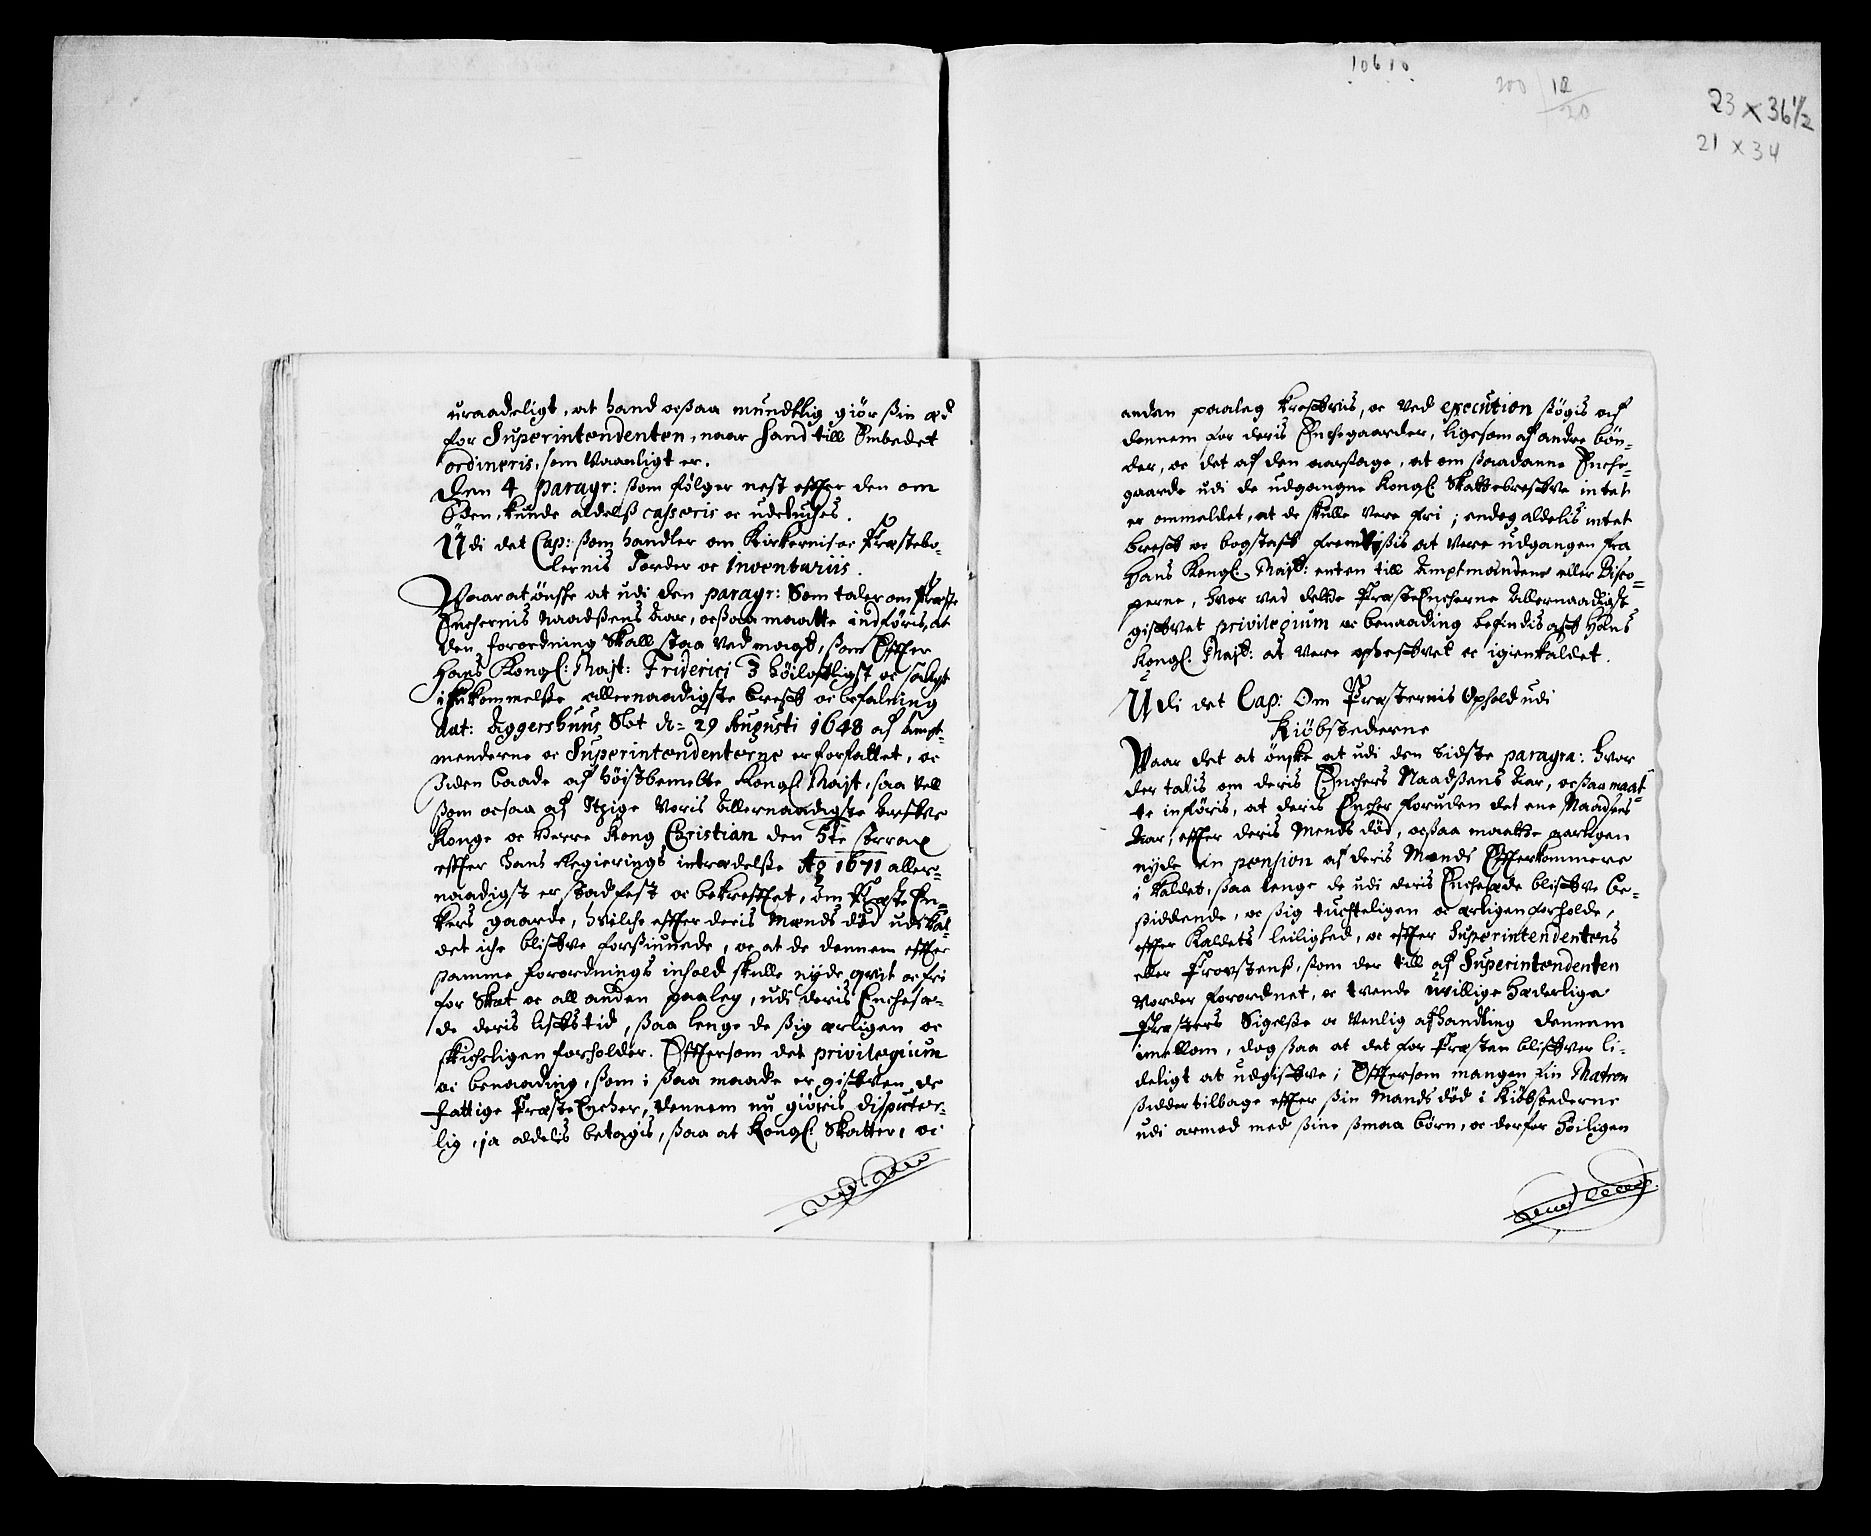 uraadeligt, at hand ocsaa mundtlig giør sin æd
for Superintendenten, naar hand till Embedet
ordineris, som Vaanligt er.
Den 4 paragr: som følger nest effter den om
Eden, kunde aldelß casseris oc udeluches.
Udi det Cap: som handler om Kirkernis oc Præstebo-
lernis Jorder oc Inventariis.
Vaar at ønske at udi den paragr: Som taler om Præste
Enchernis Naadsens Aar, ocsaa maatte indføris, at
den forordning Skall staa ved magt, som Effter
Hans Kongl: Majt: Friderici 3 høilofligst oc saligst
ihukommelse allernaadigste breff oc befalning
dat: Aggershuus Slot d: 29 Augusti 1648 af Ampt-
menderne oc Superintendenterne er forfattet, oc
siden baade af høistbemelte Kongl Majt, saa vell
som ocsaa af Itzige Voris Allernaadigste
Konge oc Herre Kong Christian den 5te strax
effter hans Regierings intrædelse Ao 1671 aller-
naadigst er stadfest oc bekrefftet, om Præste En-
kers gaarde, hvilche effter deris Mænds død udi Kal-
det iche bliffve forsiunede, oc at de dennem effter
samme forordnings inhold skulle nyde qvit oc fri
for Skat oc all anden paaleg, udi deris Enchesæ-
de deris liffstid, saa lenge de sig ærligen oc
skicheligen forholder. Effersom det privilegium
oc benaading, som i saa maade er giffven de
fattige Præste Encher, dennem nu giøris disputer-
lig, ja aldelis betagis, saa at Kongl: Skatter, oc
anden paaleg kreffvis, oc ved execution søgis aff
dennem for deris Enchegaarder, ligesom af andre bøn-
der, oc det af den aarsage, at om saadanne Enche-
gaarde udi de udgangne Kongl: Skattebreffve intet
er ommeldet, at de skulle vere fri; endog aldelis intet
breff oc bogstaff fremvisis at vere udgangen fra
Hans Kongl: Majt: enten till Amptmændene eller Bisco-
perne, hvor ved dette Præste Encherne Allernaadigst
gifftvet privilegium oc benaading befindis aff Hans
Kongl: Majt: at vere opheffvet oc igienkaldet.
Udi det Cap: Om Præsternis Ophold udi
Kiøbstederne
Vaar det at ønske at udi den sidste paragra: hvor
der talis om deris Enchers Naadsens Aar, ocsaa maat-
te inføris, at deris Encher foruden det ene Naadsens
Aar, effter deris Mends død, ocsaa maatte aarligen
nyde en pension af deris Mænds Effterkommere
i kaldet, saa lenge de udi deris Enchesæde bliffve be-
siddende, oc sig tuchteligen oc ærligen forholde,
effter Kaldets leilighed, oc effter Superintendentens
eller Provstens, som der till af Superintendenten
vorder forordnet, oc tvende uvillige Hæderlige
Præsters Sigelse oc venlig afhandling dennem
imellom, dog saa at det for Præsten bliffver li-
deligt at udgiffve; Effersom mangen Ein Matron
sidder tilbage effter sin Mands død i Kiøbstederne
udi armod med sine smaa børn, oc derfor høiligen
10610
200 12
20
23 x 36 1/2
21 x 34